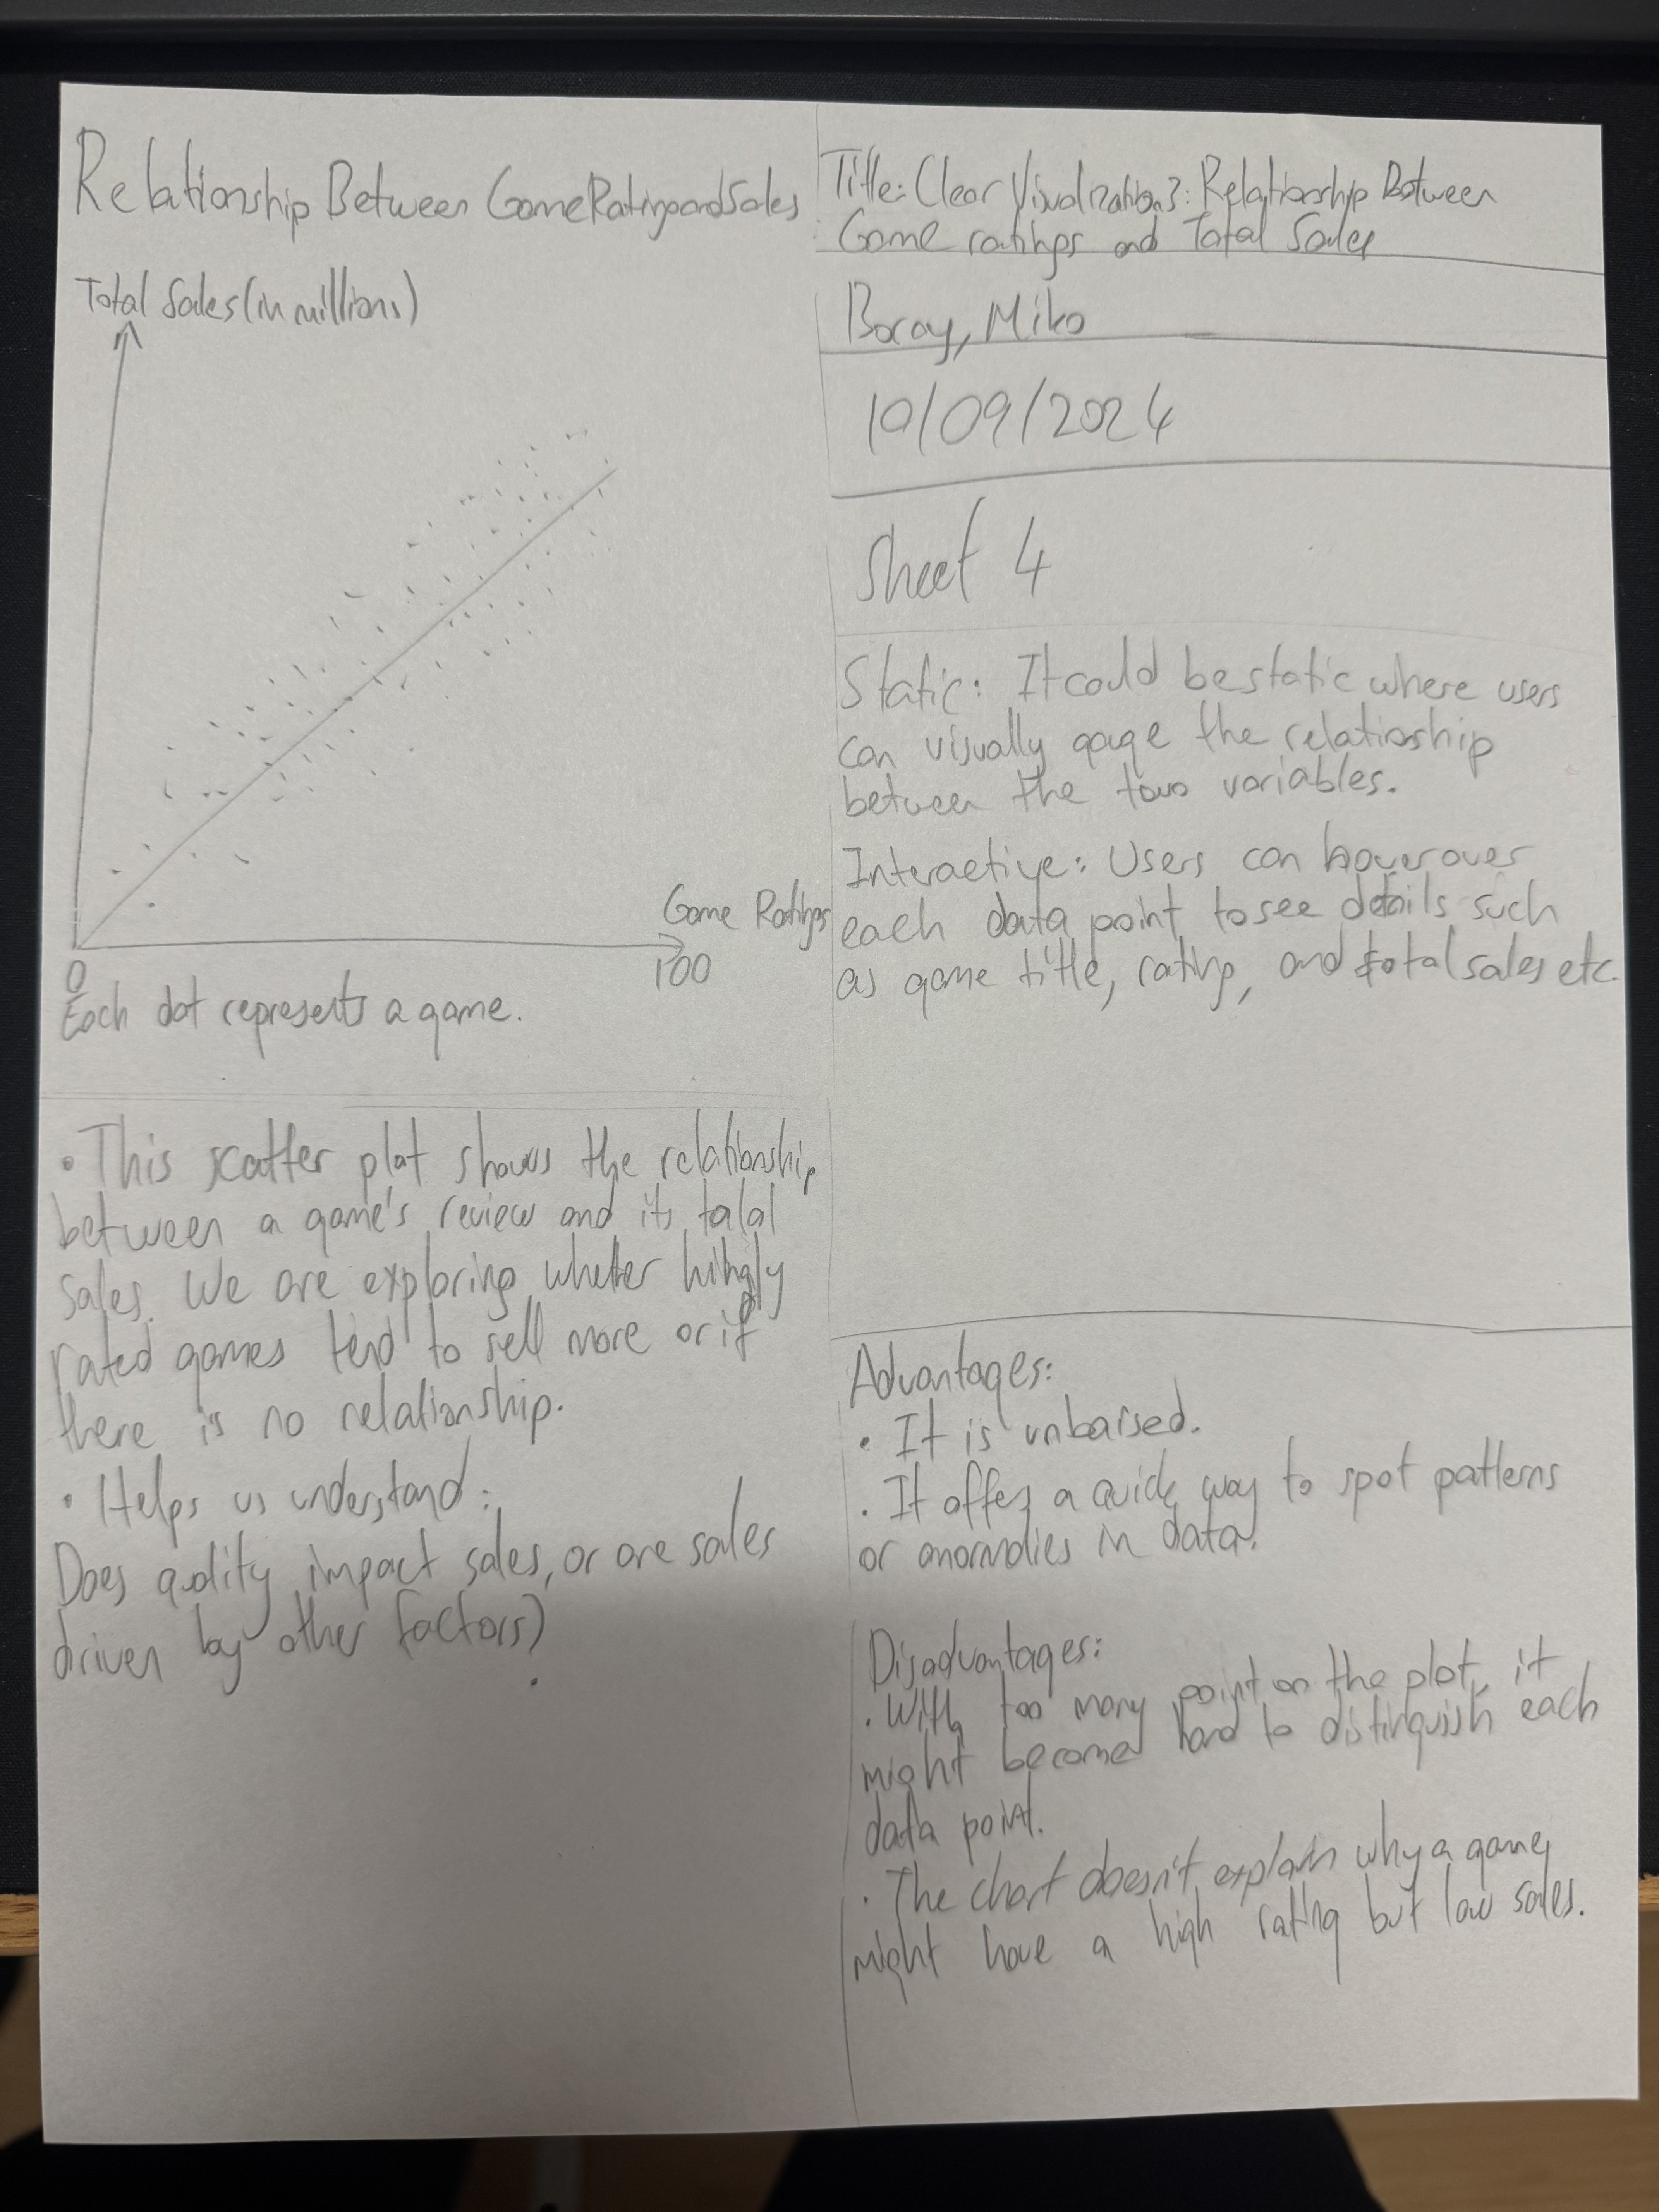 Relationship Between Game Ratings and Sales
Total Sales (in millions)
Game Ratings
0
100
Each dot represents a game.
• This scatter plot shows the relationship
between a game's review and its total
sales. We are exploring wheter hihgly
rated games tend to sell more or if
there is no relationship.
• Helps us understand:
Does quality impact sales, or are sales
driven by other factors)
Title: Clear Visualization 3: Relationship Between
Game ratings and Total Sales
Boray, Miko
10/09/2024
Sheet 4
Static: It could be static where users
can visually gauge the relationship
between the two variables.
Interactive: Users can hover over
each data point to see details such
as game title, rating, and total sales etc.
Advantages:
• It is unbaised.
• It offers a quick way to spot patterns
or anomolies in data.
Disadvantages:
• With too many point on the plot, it
might become hard to distinguish each
data point.
• The chart doesn't explain why a game
might have a high rating but low sales.